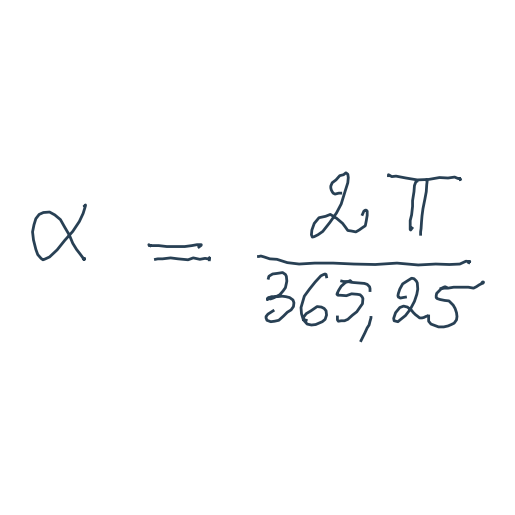 α = 2π / 365,25